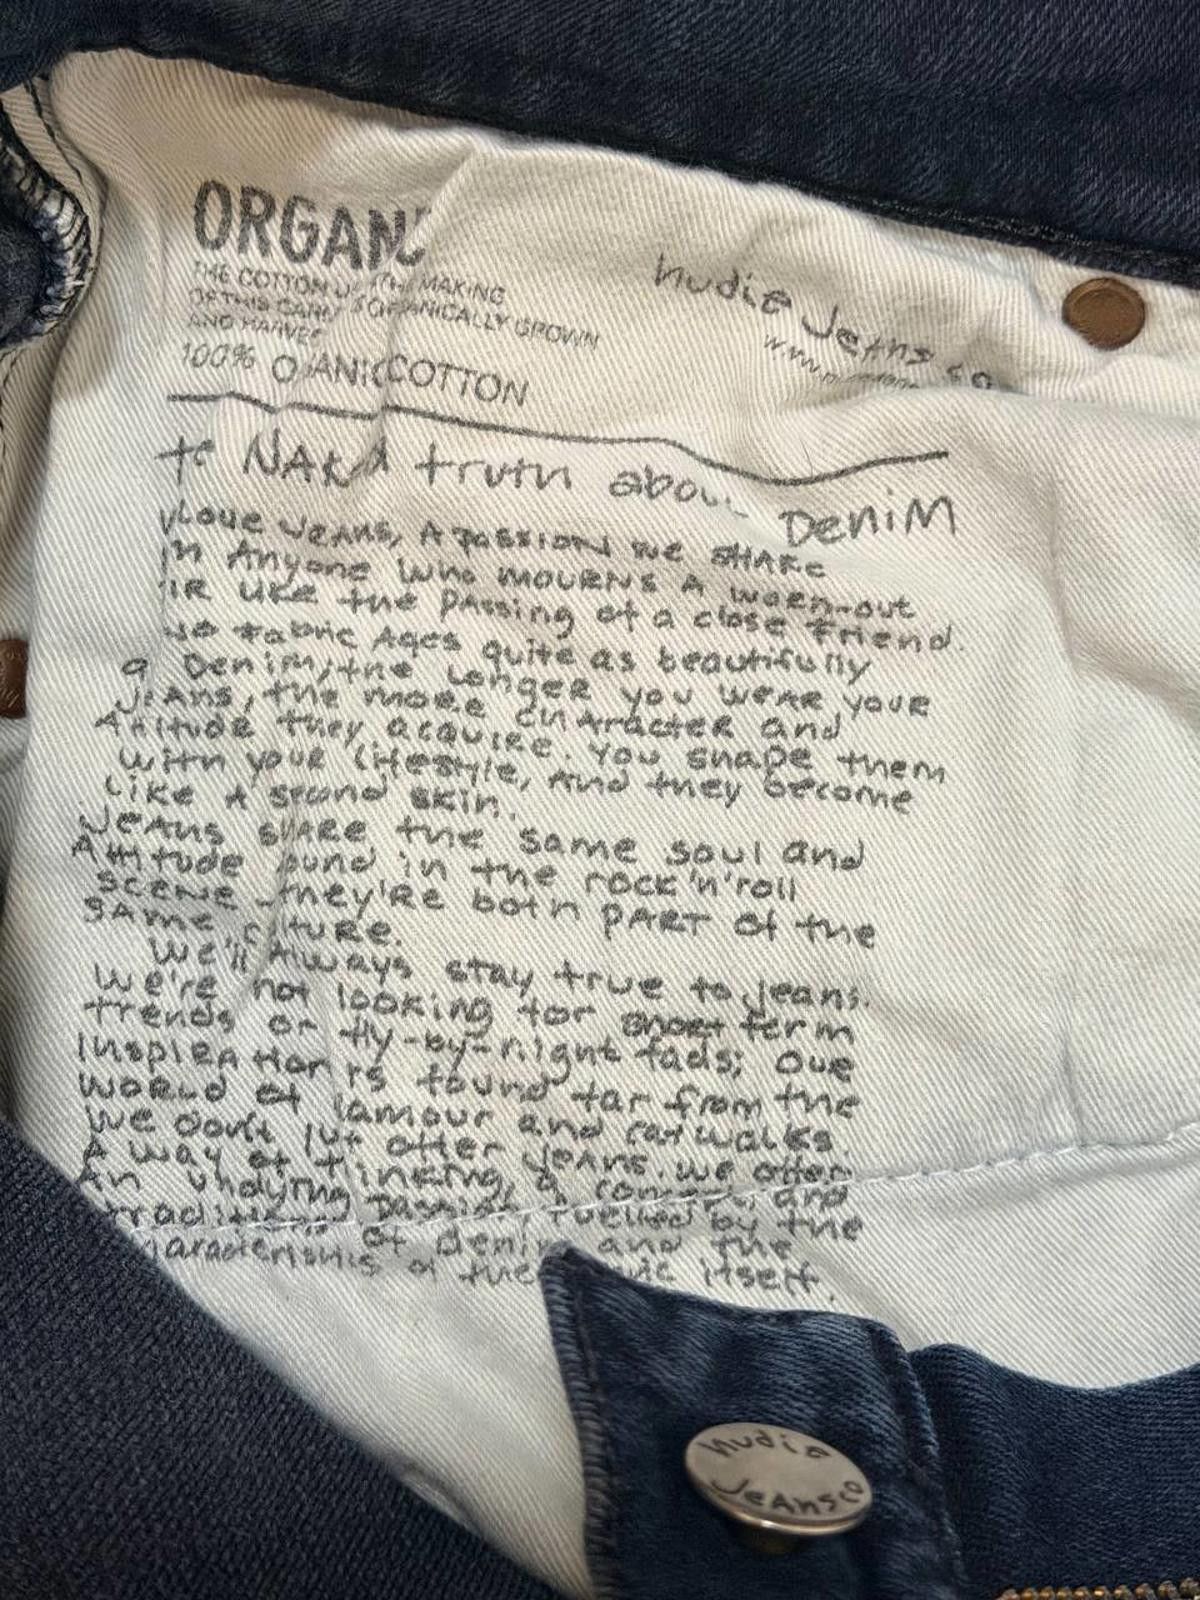 ORGANIC
THE COTTON MAKING
OF THIS ORGANICALLY GROWN
AND
100% ORGANIC COTTON
nudie Jeans co
the NAKED truth about DeniM
Love JeANS, A PASSION we SHARE
Anyone who MOURNS A worn-out
like the PAssing of a close friend.
No fabric Ages quite as beautifully
Denim; the Longer you weAR your
JeAns, the more chAracter and
Attitude they acquire. You shape them
with your lifestyle, And they become
like A second skin.
JeAns sHARe the same soul and
Attitude found in the rock'n'roll
scene they're both PART of the
sAme TURE.
We'll Always stay true to Jeans.
We're not looking for short term
trends or fly-by-night fads; our
InspiRAtion is found far from the
WORLD of glamour and catwalks.
We don't just offer JeAns. We offer
A way of thinking, a concept, and
An undying passion, fuelled by the
traditions of denim and the
characteristics of the itself.
nudie
JeAnsco